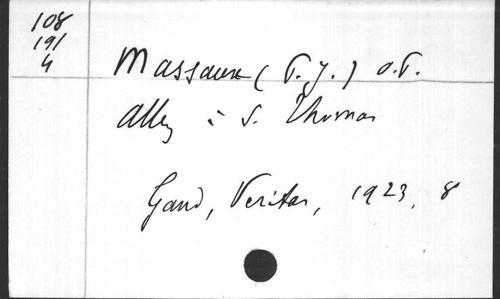 108
191
4
Massaux (T. J.) O.P.
Allez à S. Thomas
Gand, Veritas, 1923, 8